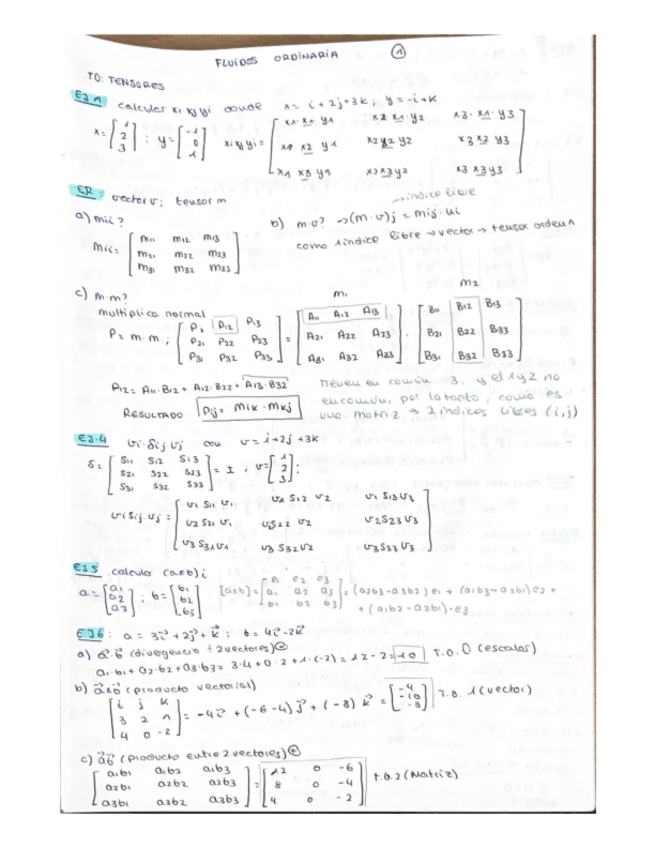 FLUIDOS ORDINARIA 1
T0: TENSORES
EJ.1 calcular xi xj yi donde x = i + 2j + 3k ; y = -i + k
x = [1 2 3] ; y = [-1 0 1] xi xj yi = [x1·x1·y1 x2 x1·y2 x3·x1·y3
x1 x2 y1 x2 y2 y2 x3 x2 y3
x1 x3 y1 x2 x3 y2 x3 x3 y3]
ER: vector v; tensor m
a) mii?
mii = [m11 m12 m13
m21 m22 m23
m31 m32 m33]
→ indice libre
b) m·v? → (m·v)j = mij·vi
como 1 indice libre → vector → tensor orden 1
c) m·m?
multiplica normal
m1 m2
P = m·m ; [P1 P12 P13 = [A11 A12 A13 · [B11 B12 B13
P21 P22 P23 A21 A22 A23 B21 B22 B33
P31 P32 P33] A31 A32 A33] B31 B32 B33]
P12 = A11·B12 + A12·B22 + A13·B32
RESULTADO Pij = mik·mkj
tienen en común 3, y el 1 y 2 no
en común, por lo tanto, como es
una matriz → 2 indices libres (i,j)
EJ.4 vi·δij vj con v = i + 2j + 3k
δ = [S11 S12 S13
S21 S22 S23
S31 S32 S33] = I ; v = [1 2 3];
vi Sij vj = [v1 S11 v1 v2 S12 v2 v1 S13 v3
v2 S21 v1 vS22 v2 v2S23 v3
v3 S31 v1 v3 S32 v2 v3S33 v3]
EJ.5 calculo (axb)i
a = [a1 a2 a3] ; b = [b1 b2 b3] [axb] = [e1 e2 e3
a1 a2 a3
b1 b2 b3] = (a2b3-a3b2)e1 + (a1b3-a3b1)e2 +
+ (a1b2 - a2b1)·e3
EJ6: a = 3i + 2j + k ; b = 4i - 2k
a) a·b (divergencia ÷ 2 vectores)
a1·b1 + a2·b2 + a3·b3 = 3·4 + 0·2 + 1·(-2) = 12 - 2 = 10 T.O.0 (escalar)
b) axb (producto vectorial)
[i j k
3 2 1
4 0 -2] = -4i + (-6-4)j + (-8)k = [-4 -10 -8] T.O. 1 (vector)
c) ab (producto entre 2 vectores)
[a1b1 a1b2 a1b3 = [12 0 -6
a2b1 a2b2 a2b3 8 0 -4
a3b1 a3b2 a3b3] 4 0 -2] T.O.2 (Matriz)